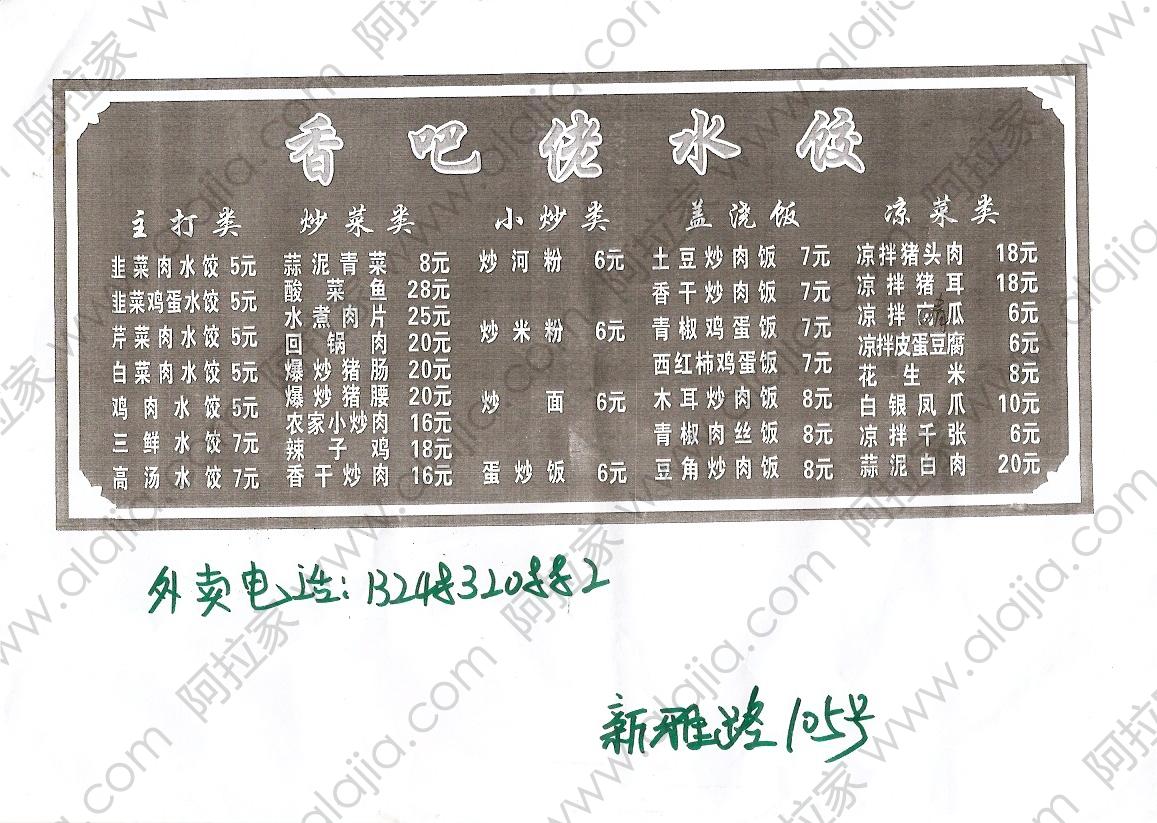 香吧佬水饺
主打类
韭菜肉水饺 5元
韭菜鸡蛋水饺 5元
芹菜肉水饺 5元
白菜肉水饺 5元
鸡肉水饺 5元
三鲜水饺 7元
高汤水饺 7元
炒菜类
蒜泥青菜 8元
酸菜鱼 28元
水煮肉片 25元
回锅肉 20元
爆炒猪肠 20元
爆炒猪腰 20元
农家小炒肉 16元
辣子鸡 18元
香干炒肉 16元
小炒类
炒河粉 6元
炒米粉 6元
炒面 6元
蛋炒饭 6元
盖浇饭
土豆炒肉饭 7元
香干炒肉饭 7元
青椒鸡蛋饭 7元
西红柿鸡蛋饭 7元
木耳炒肉饭 8元
青椒肉丝饭 8元
豆角炒肉饭 8元
凉菜类
凉拌猪头肉 18元
凉拌猪耳 18元
凉拌瓜 6元
凉拌皮蛋豆腐 6元
花生米 8元
白银凤爪 10元
凉拌千张 6元
蒜泥白肉 20元
外卖电话: 13248320882
新雅路105号
阿拉家 www.alajia.com